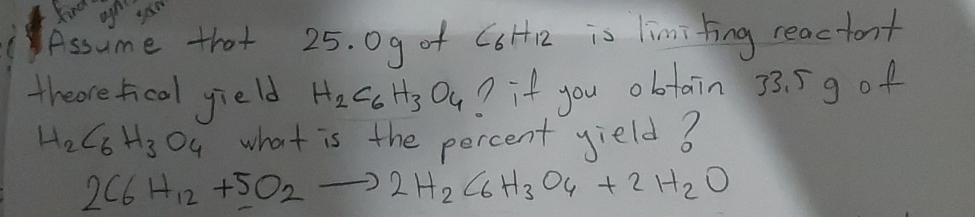 Assume that 25.0g of C6H12 is limiting reactont
theoretical yield H2C6H3O4? if you obtain 33,5 g of
H2C6H3O4 what is the percent yield?
2C6H12 +5O2 → 2H2C6H3O4 + 2H2O